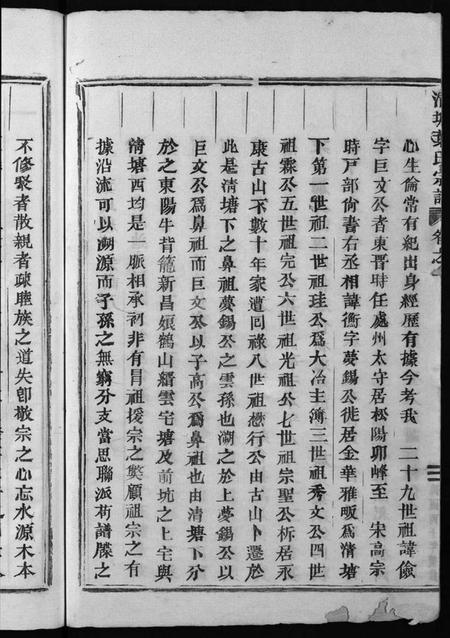 清塘葉氏宗譜 卷之
心生倫常有紀出身經歷有據今考我 二十九世祖諱儉
字巨文公者東晋時任處州太守居松陽卯峰至 宋高宗
時戸部尚書右丞相諱衡字夢錫公徙居金華雅畈爲清塘
下第一世祖二世祖珪公爲大冶主簿三世祖秀文公四世
祖霖公五世祖完公六世祖光祖公七世祖宗聖公析居永
康古山不數十年家遭回祿八世祖懋行公由古山卜遷於
此是清塘下之鼻祖夢錫公之雲孫也溯之於上夢錫公以
巨文公爲鼻祖而巨文公以子高公爲鼻祖也由清塘下分
於之東陽牛背籠新昌娘鶴山縉雲宅塘及前坑之上宅與
清塘西均是一脈相承初非有冐祖援宗之獘顧祖宗之有
據沿流可以溯源而子孫之無窮分支當思聯派茍譜牒之
不修聚者散親者疎睦族之道失卽敬宗之心忘水源木本